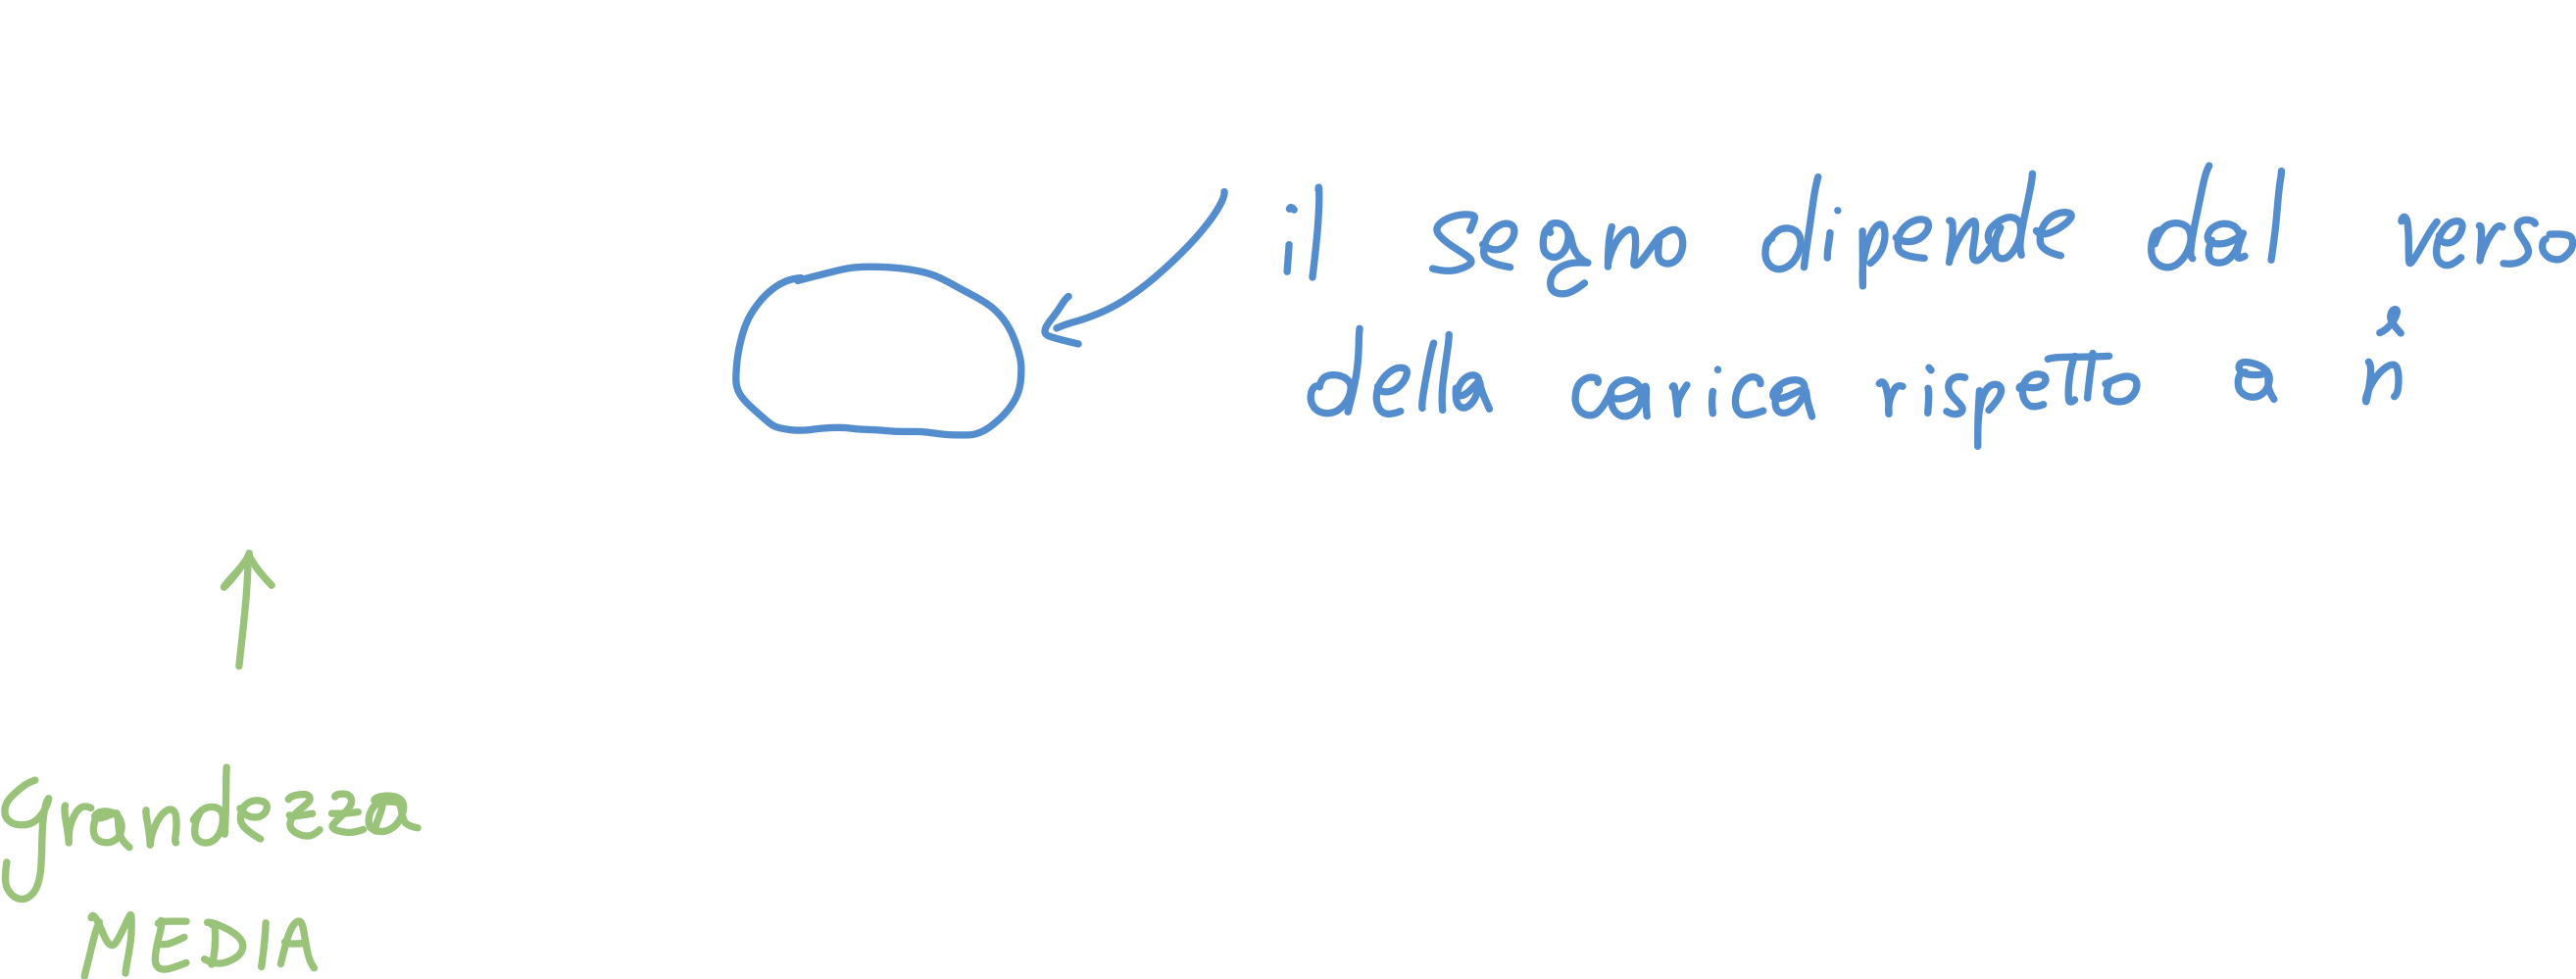 il segno dipende dal verso
della carica rispetto a n̂
Grandezza
MEDIA